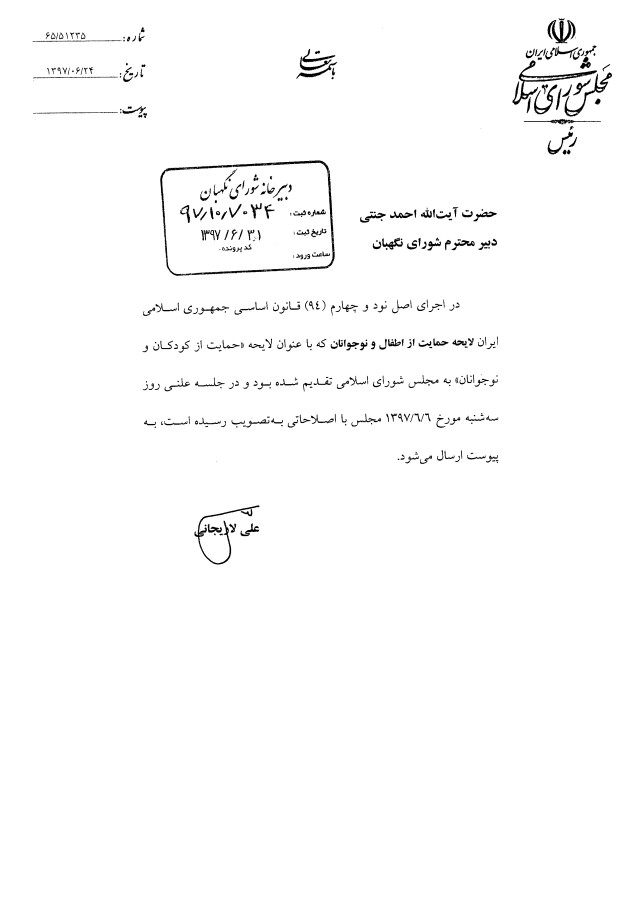 جمهوری اسلامی ایران
مجلس شورای اسلامی
رئیس
باسمه تعالی
شماره: ۶۵/۵۱۲۳۵
تاریخ: ۱۳۹۷/۰۶/۲۴
پیوست:
دبیرخانه شورای نگهبان
شماره ثبت: ۹۷/۱۰/۷۰۳۴
تاریخ ثبت: ۱۳۹۷/۶/۳۱
کد پرونده:
ساعت ورود:
حضرت آیت‌الله احمد جنتی
دبیر محترم شورای نگهبان
در اجرای اصل نود و چهارم (۹۴) قانون اساسی جمهوری اسلامی
ایران لایحه حمایت از اطفال و نوجوانان که با عنوان لایحه «حمایت از کودکان و
نوجوانان» به مجلس شورای اسلامی تقدیم شده بود و در جلسه علنی روز
سه‌شنبه مورخ ۱۳۹۷/۶/۶ مجلس با اصلاحاتی به‌تصویب رسیده است، به
پیوست ارسال می‌شود.
علی لاریجانی